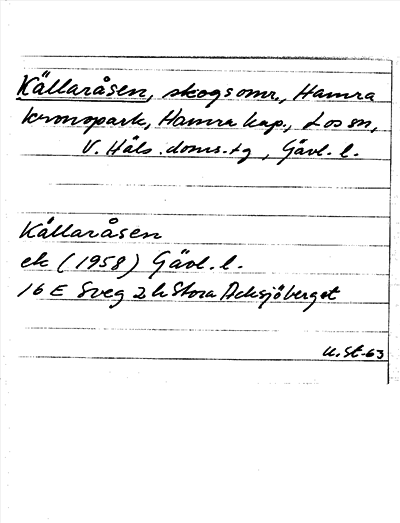 Källaråsen, skogsomr., Hamra
kronopark, Hamra kap., Los sn,
V. Häls. doms.-tg, Gävl. l.
Källaråsen
ek (1958) Gävl. l.
16 E Sveg 2 h Stora Acksjöberget
U. St-63